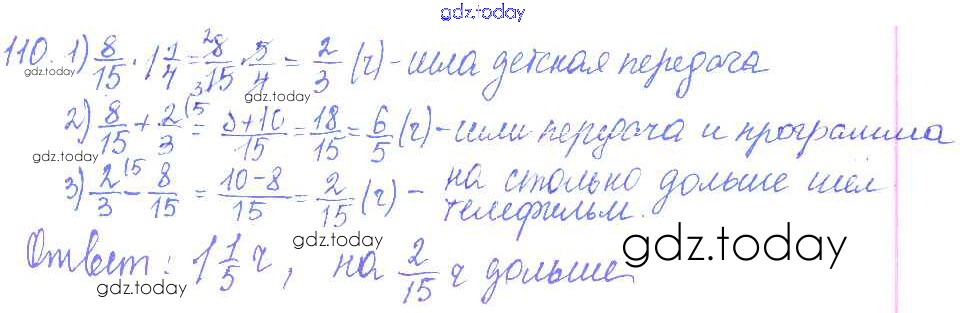 gdz.today
110. 1) 8/15 · 1 1/4 = 8/15 · 5/4 = 2/3 (ч) - шла детская передача
gdz.today
gdz.today
2) 8/15 + 2/3 = 8+10/15 = 18/15 = 6/5 (ч) - шли передача и программа
gdz.today
3) 2/3 - 8/15 = 10-8/15 = 2/15 (ч) - на столько дольше шёл
телефильм.
gdz.today
gdz.today
Ответ: 1 1/5 ч, на 2/15 ч дольше
gdz.today